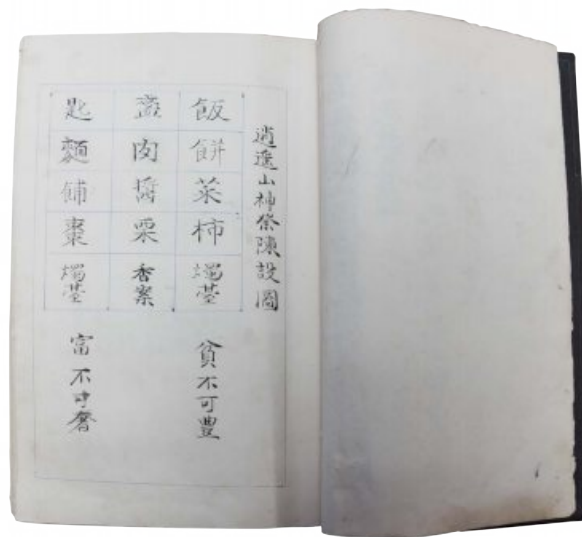 逍遙山神祭陳設圖
飯
餠
菜
柿
燭臺
盞
肉
醬
栗
香案
匙
麵
棗
燭臺
貧不可豊
富不可奢